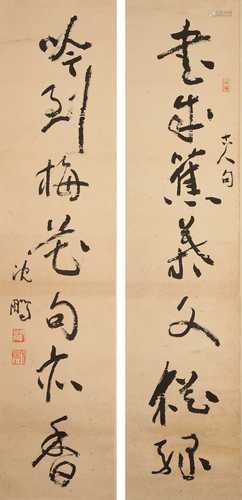 書成蕉葉文猶綠
古人句
吟到梅花句亦香
沈鵬